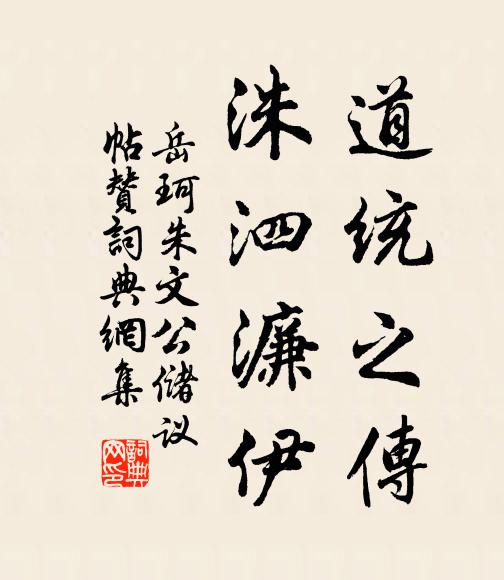 道統之傳
洙泗濂伊
岳珂朱文公儲议
帖贊詞典網集
詞典网印